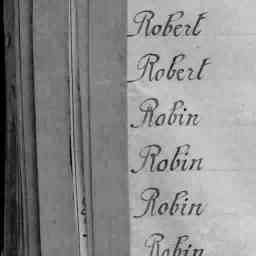 Robert
Robert
Robin
Robin
Robin
Robin